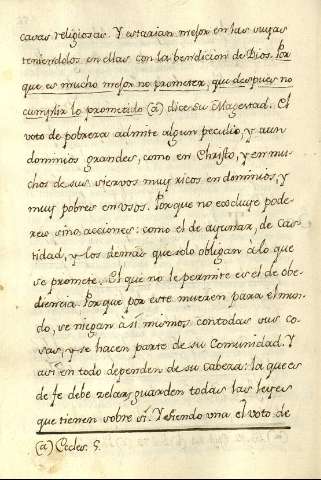 casas religiosas. Y estarian mejor en las suyas
teniendolos en ellas con la bendicion de Dios. Por
que es mucho mejor no prometer, que despues no
cumplir lo prometido (a) dice su Magestad. El
voto de pobreza admite algun peculio, y aun
dominios grandes, como en Christo, y en mu-
chos de sus siervos muy ricos en dominios, y
muy pobres en usos. Porque no escluye pode-
res sino acciones: como el de ayunar, de Cas-
tidad, y los demas que solo obligan à lo que
se promete. El que no le permite es el de obe-
diencia. Porque por este mueren para el mun-
do, se niegan à sì mismos, con todas sus co-
sas, y se hacen parte de su Comunidad. Y
asi en todo dependen de su cabeza: la que es
de fe debe zelar guarden todas las leyes
que tienen sobre sì. Y siendo una el voto de
(a) Eccles. 5.